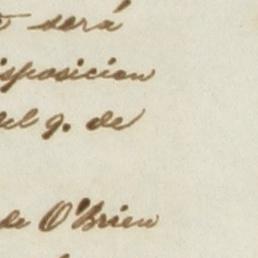 será
isposicion
del g. de
de O'Brien